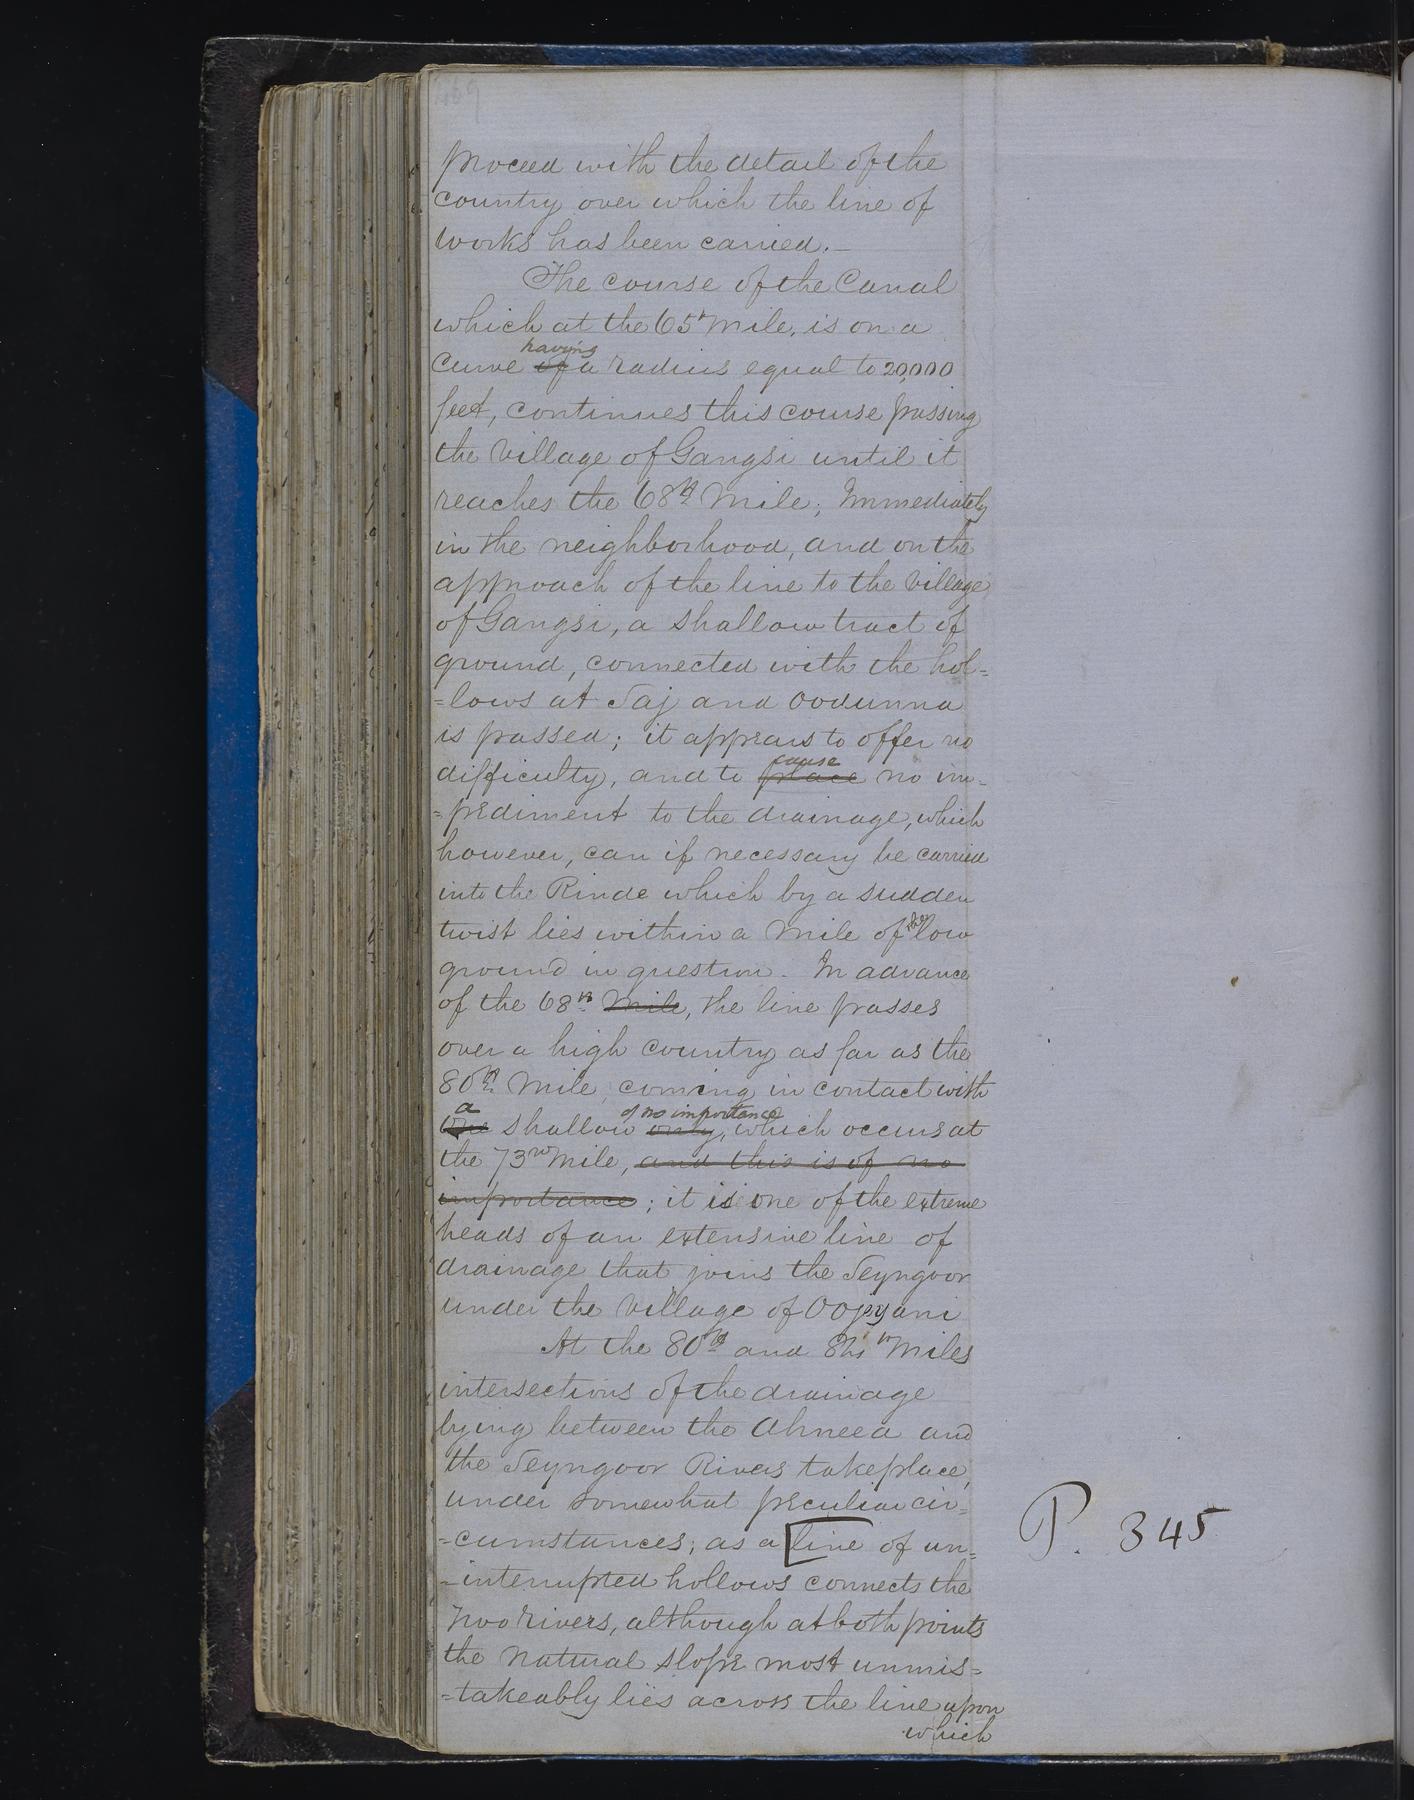 proceed with the detail of the
country over which the line of
works has been carried. –
The course of the Canal
which at the 65th Mile, is on a
having
curve of a radius equal to 20,000
feet, continues this course passing
the village of Gangsi until it
reaches the 68th Mile; Immediately
in the neighborhood, and on the
approach of the line to the village
of Gangsi, a shallow tract of
ground, connected with the hol=
=lows at Saj and Oodunna
is passed; it appears to offer no
cause
difficulty, and to place no im-
=pediment to the drainage, which
however, can if necessary be carried
into the Rinde which by a sudden
twist lies within a Mile of the low
ground in question. In advance
of the 68th Mile, the line passes
over a high country as far as the
80th Mile, coming in contact with
a of no importance
One shallow only, which occurs at
the 73rd Mile, and this is of no
importance; it is one of the extreme
heads of an extensive line of
drainage that joins the Seyngoor
under the village of Oojyani
At the 80th and Miles
intersections of the drainage
lying between the Ahneea and
the Seyngoor Rivers take place,
under somewhat peculiar cir=
=cumstances; as a [line of un=
P. 345
=interrupted hollows connects the
two rivers, although at both points
the natural slope most unmis=
=takeably lies across the line upon
which